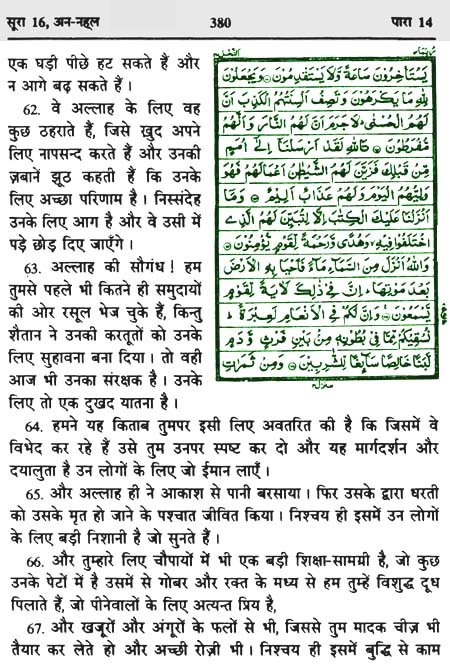 सूरा 16, अन-नह्ल
380
पारा 14
एक घड़ी पीछे हट सकते हैं और
न आगे बढ़ सकते हैं ।
62. वे अल्लाह के लिए वह
कुछ ठहराते हैं, जिसे ख़ुद अपने
लिए नापसन्द करते हैं और उनकी
ज़बानें झूठ कहती हैं कि उनके
लिए अच्छा परिणाम है । निस्संदेह
उनके लिए आग है और वे उसी में
पड़े छोड़ दिए जाएँगे ।
63. अल्लाह की सौगंध ! हम
तुमसे पहले भी कितने ही समुदायों
की ओर रसूल भेज चुके हैं, किन्तु
शैतान ने उनकी करतूतों को उनके
लिए सुहावना बना दिया । तो वही
आज भी उनका संरक्षक है । उनके
लिए तो एक दुखद यातना है ।
يستاخرون ساعة ولا يستقدمون ويجعلون
لله ما يكرهون وتصف السنتهم الكذب ان
لهم الحسنى لا جرم ان لهم النار وانهم
مفرطون تالله لقد ارسلنا الى امم
من قبلك فزين لهم الشيطن اعمالهم فهو
وليهم اليوم ولهم عذاب اليم وما
انزلنا عليك الكتب الا لتبين لهم الذى
اختلفوا فيه وهدى ورحمة لقوم يؤمنون
والله انزل من السماء ماء فاحيا به الارض
بعد موتها ان فى ذلك لاية لقوم
يسمعون وان لكم فى الانعام لعبرة
نسقيكم مما فى بطونه من بين فرث ودم
لبنا خالصا سائغا للشربين ومن ثمرت
64. हमने यह किताब तुमपर इसी लिए अवतरित की है कि जिसमें वे
विभेद कर रहे हैं उसे तुम उनपर स्पष्ट कर दो और यह मार्गदर्शन और
दयालुता है उन लोगों के लिए जो ईमान लाएँ ।
65. और अल्लाह ही ने आकाश से पानी बरसाया । फिर उसके द्वारा धरती
को उसके मृत हो जाने के पश्चात जीवित किया । निश्चय ही इसमें उन लोगों
के लिए बड़ी निशानी है जो सुनते हैं ।
66. और तुम्हारे लिए चौपायों में भी एक बड़ी शिक्षा-सामग्री है, जो कुछ
उनके पेटों में है उसमें से गोबर और रक्त के मध्य से हम तुम्हें विशुद्ध दूध
पिलाते हैं, जो पीनेवालों के लिए अत्यन्त प्रिय है,
67. और खजूरों और अंगूरों के फलों से भी, जिससे तुम मादक चीज़ भी
तैयार कर लेते हो और अच्छी रोज़ी भी । निश्चय ही इसमें बुद्धि से काम